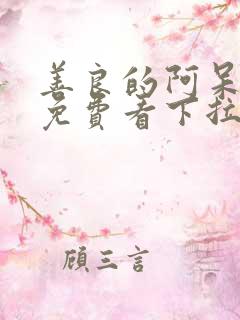 善良的阿呆
免费看下拉
顧三言